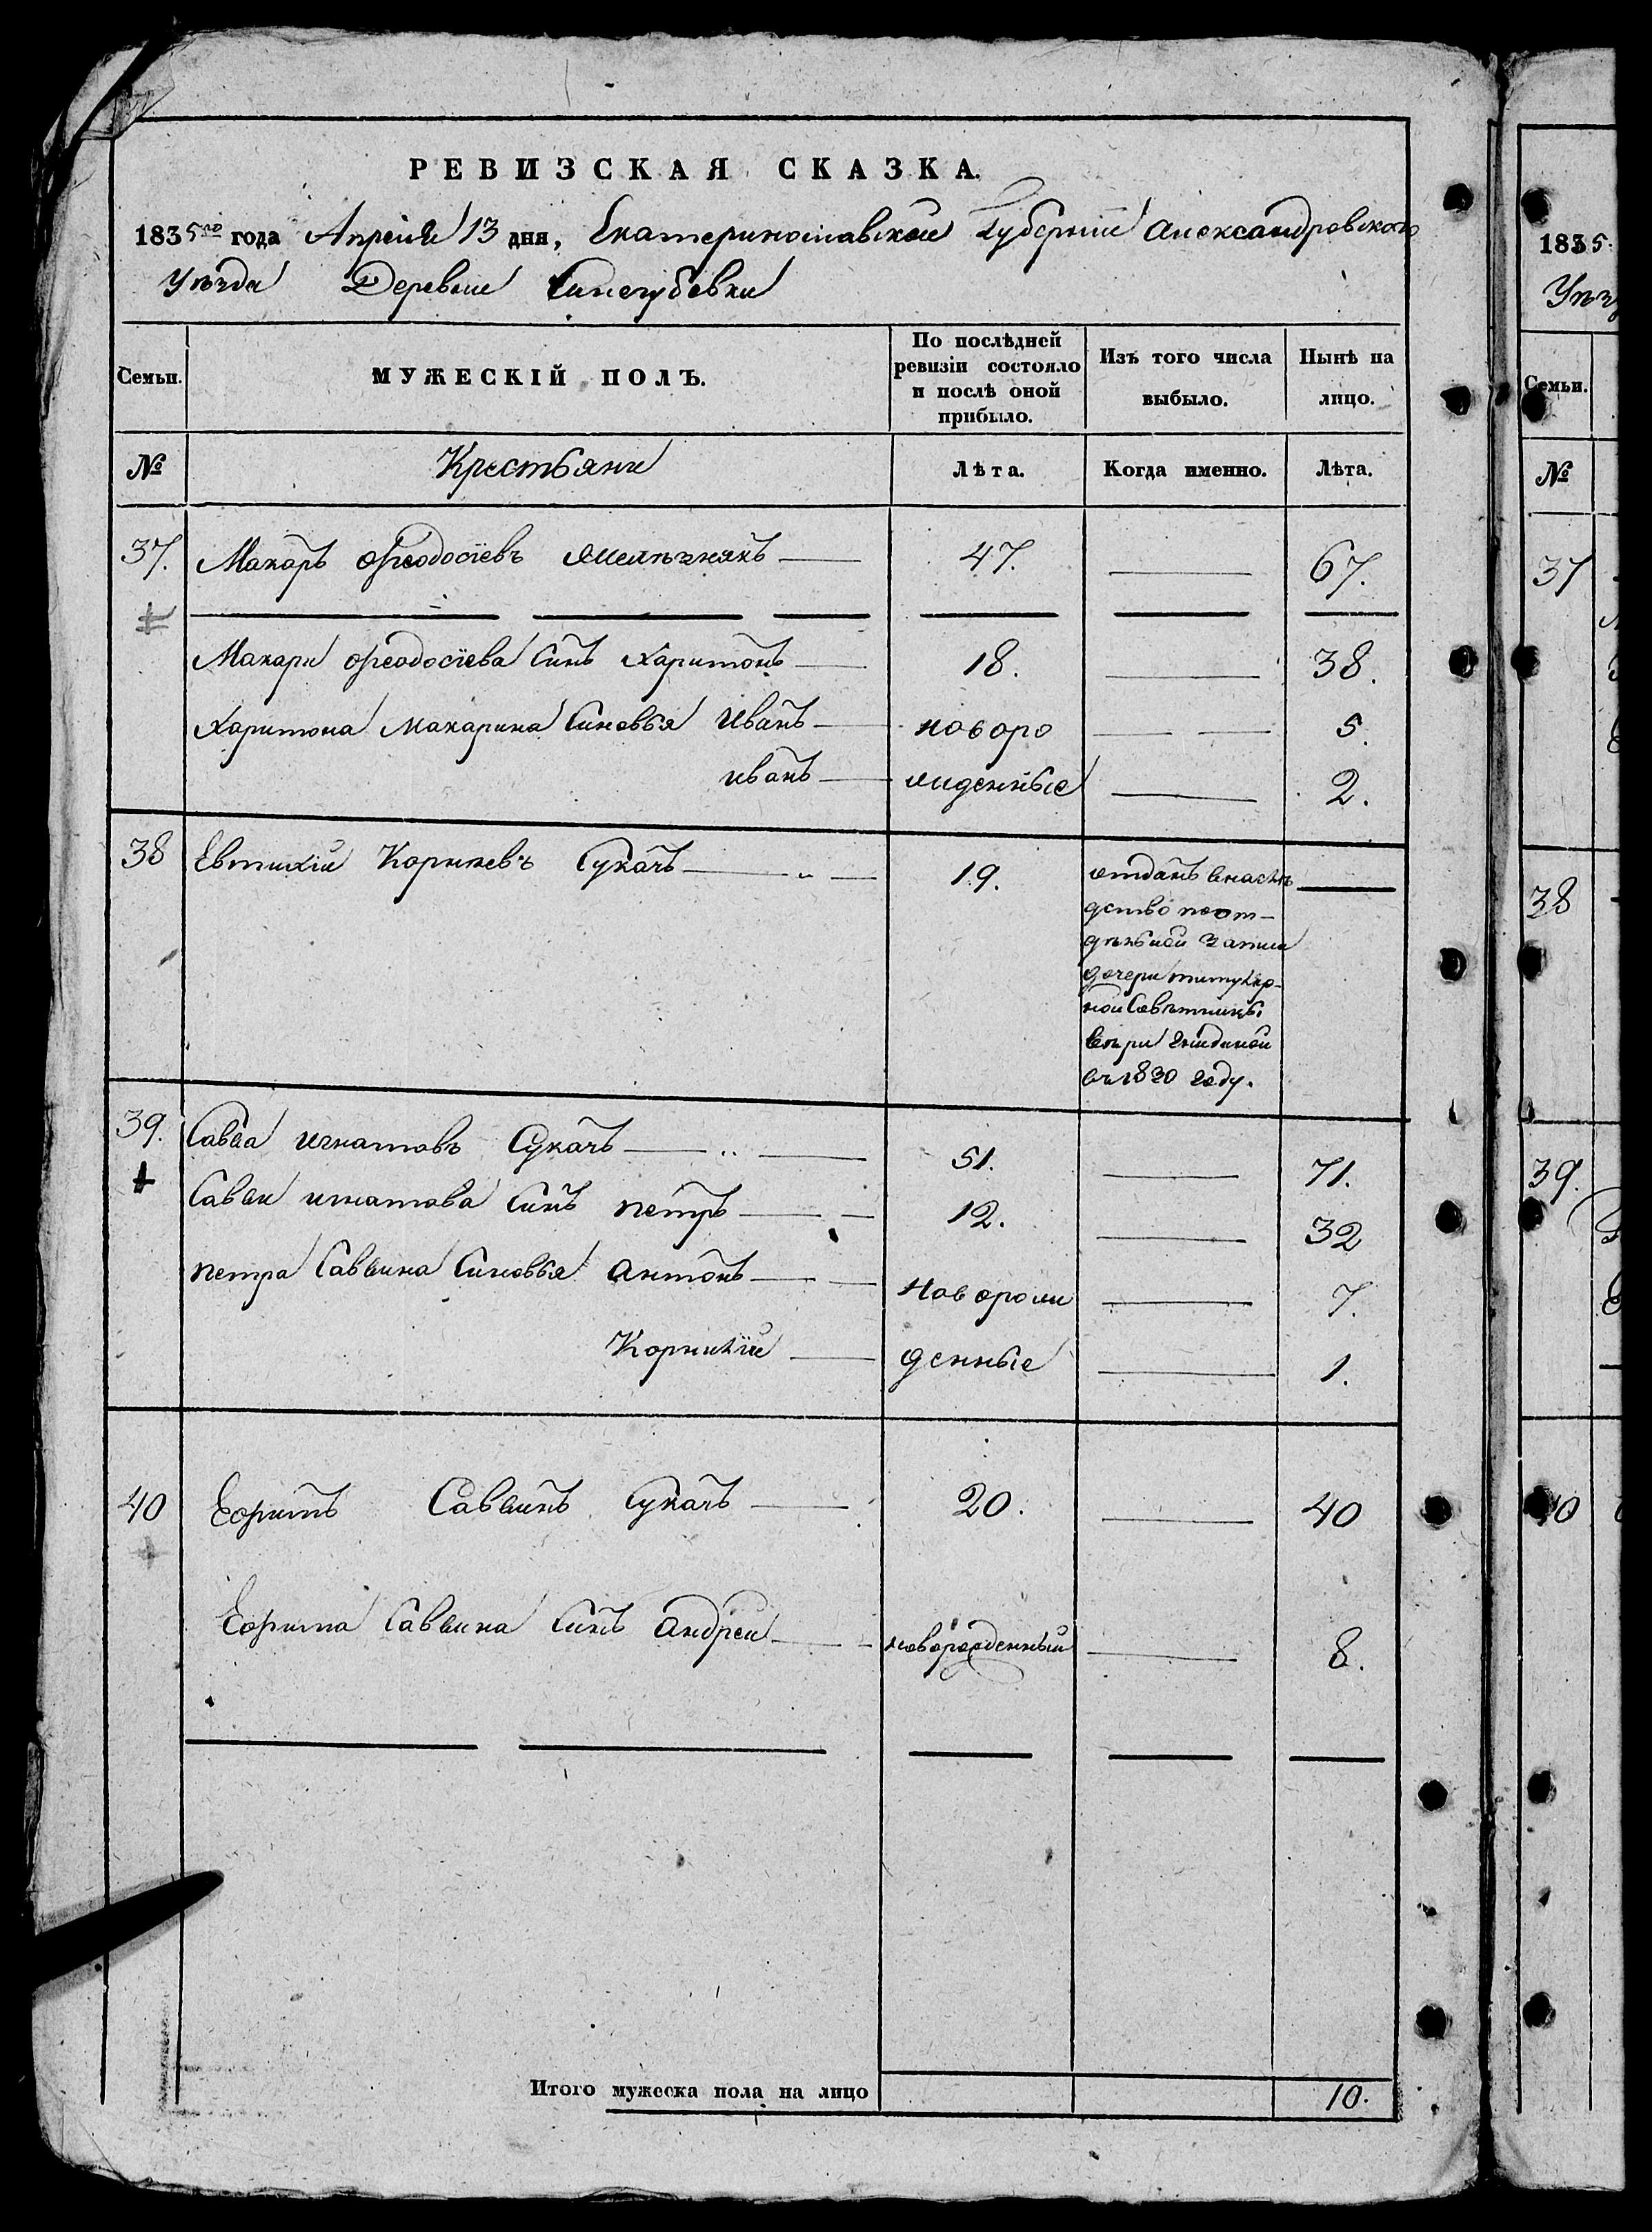 РЕВИЗСКАЯ СКАЗКА.
1835го года Апреля 13 дня, Екатеринославской Губернии Александровского
Уѣзда Деревни Синегубовки
Семьи. МУЖЕСКІЙ ПОЛЪ. По послѣдней ревизіи состояло и послѣ оной прибыло. Изъ того числа выбыло. Нынѣ на лицо.
№ Крестьяне Лѣта. Когда именно. Лѣта.
37. Макаръ Феодосіевъ 47. 67.
Макара Феодосіева Синъ Харитонъ 18. 38.
Харитона Макарина Синовья Иванъ новоро 5.
иванъ жденные 2.
38 Евтихій Корнѣевъ Сукачъ 19. отданъ внаслѣ
дство поот-
дѣльной записи
дочери титуляр-
ной Совѣтницы
вѣри
въ 1830 году.
39. Савва игнатовъ Сукачъ 51. 71.
Саввы игнатова Синъ петръ 12. 32
петра Саввина Синовья антонъ Новорож 7.
Корнилій денные 1.
40 Ефимъ Саввинъ Сукачъ 20. 40
Ефима Саввина Синъ андрей новорожденный 8.
Итого мужеска пола на лицо 10.
1835
Уѣз
Семьи.
№
37
38
39.
40